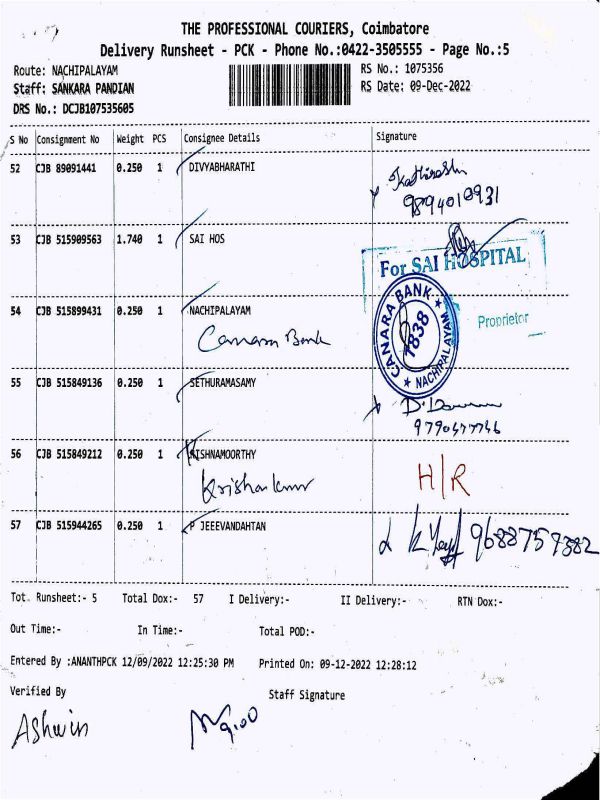 THE PROFESSIONAL COURIERS, Coimbatore
Delivery Runsheet - PCK - Phone No.:0422-3505555 - Page No.:5
Route: NACHIPALAYAM RS No.: 1075356
Staff: SANKARA PANDIAN RS Date: 09-Dec-2022
DRS No.: DCJB107535605
S No Consignment No Weight PCS Consignee Details Signature
52 CJB 89091441 0.250 1 DIVYABHARATHI
9894010931
53 CJB 515909563 1.740 1 SAI HOS
For SAI HOSPITAL
Proprietor
54 CJB 515899431 0.250 1 NACHIPALAYAM
Canara Bank
CANARA BANK
1838
NACHIPALAYAM
55 CJB 515849136 0.250 1 SETHURAMASAMY
56 CJB 515849212 0.250 1 KRISHNAMOORTHY
Krishankumar
H/R
57 CJB 515944265 0.250 1 P JEEEVANDAHTAN
9688759382
Tot. Runsheet:- 5 Total Dox:- 57 I Delivery:- II Delivery:- RTN Dox:-
Out Time:- In Time:- Total POD:-
Entered By :ANANTHPCK 12/09/2022 12:25:30 PM Printed On: 09-12-2022 12:28:12
Verified By Staff Signature
Ashwin